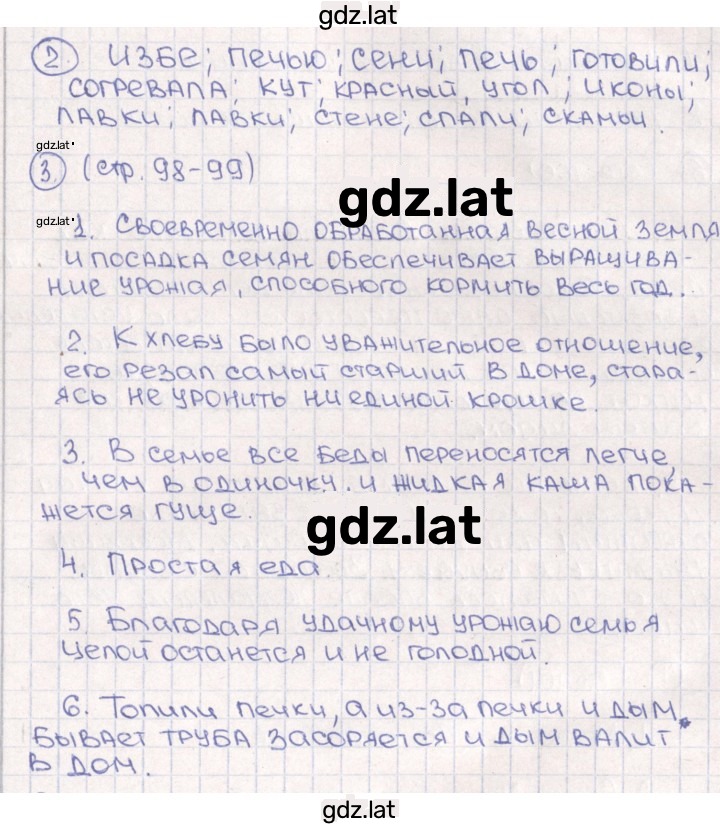 gdz.lat
2. ИЗБЕ; ПЕЧЬЮ; СЕНИ; ПЕЧЬ; ГОТОВИЛИ;
СОГРЕВАЛА; КУТ; КРАСНЫЙ, УГОЛ; ИКОНЫ;
ЛАВКИ; ЛАВКИ; СТЕНЕ; СПАЛИ; СКАМЬИ.
gdz.lat
3. (стр. 98-99)
gdz.lat
gdz.lat
1. Своевременно обработанная весной земля
и посадка семян обеспечивает выращива-
ние урожая, способного кормить весь год.
2. К хлебу было уважительное отношение,
его резал самый старший в доме, стара-
ясь не уронить ни единой крошке.
3. В семье все беды переносятся легче,
чем в одиночку. и жидкая каша пока-
жется гуще.
gdz.lat
4. Простая еда
5. Благодаря удачному урожаю семья
целой останется и не голодной.
6. Топили печки, а из-за печки и дым.
бывает труба засоряется и дым валит
в дом.
gdz.lat